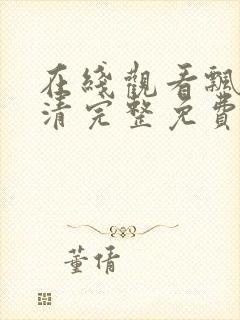 在綫觀看飄
清完整免費
董倩